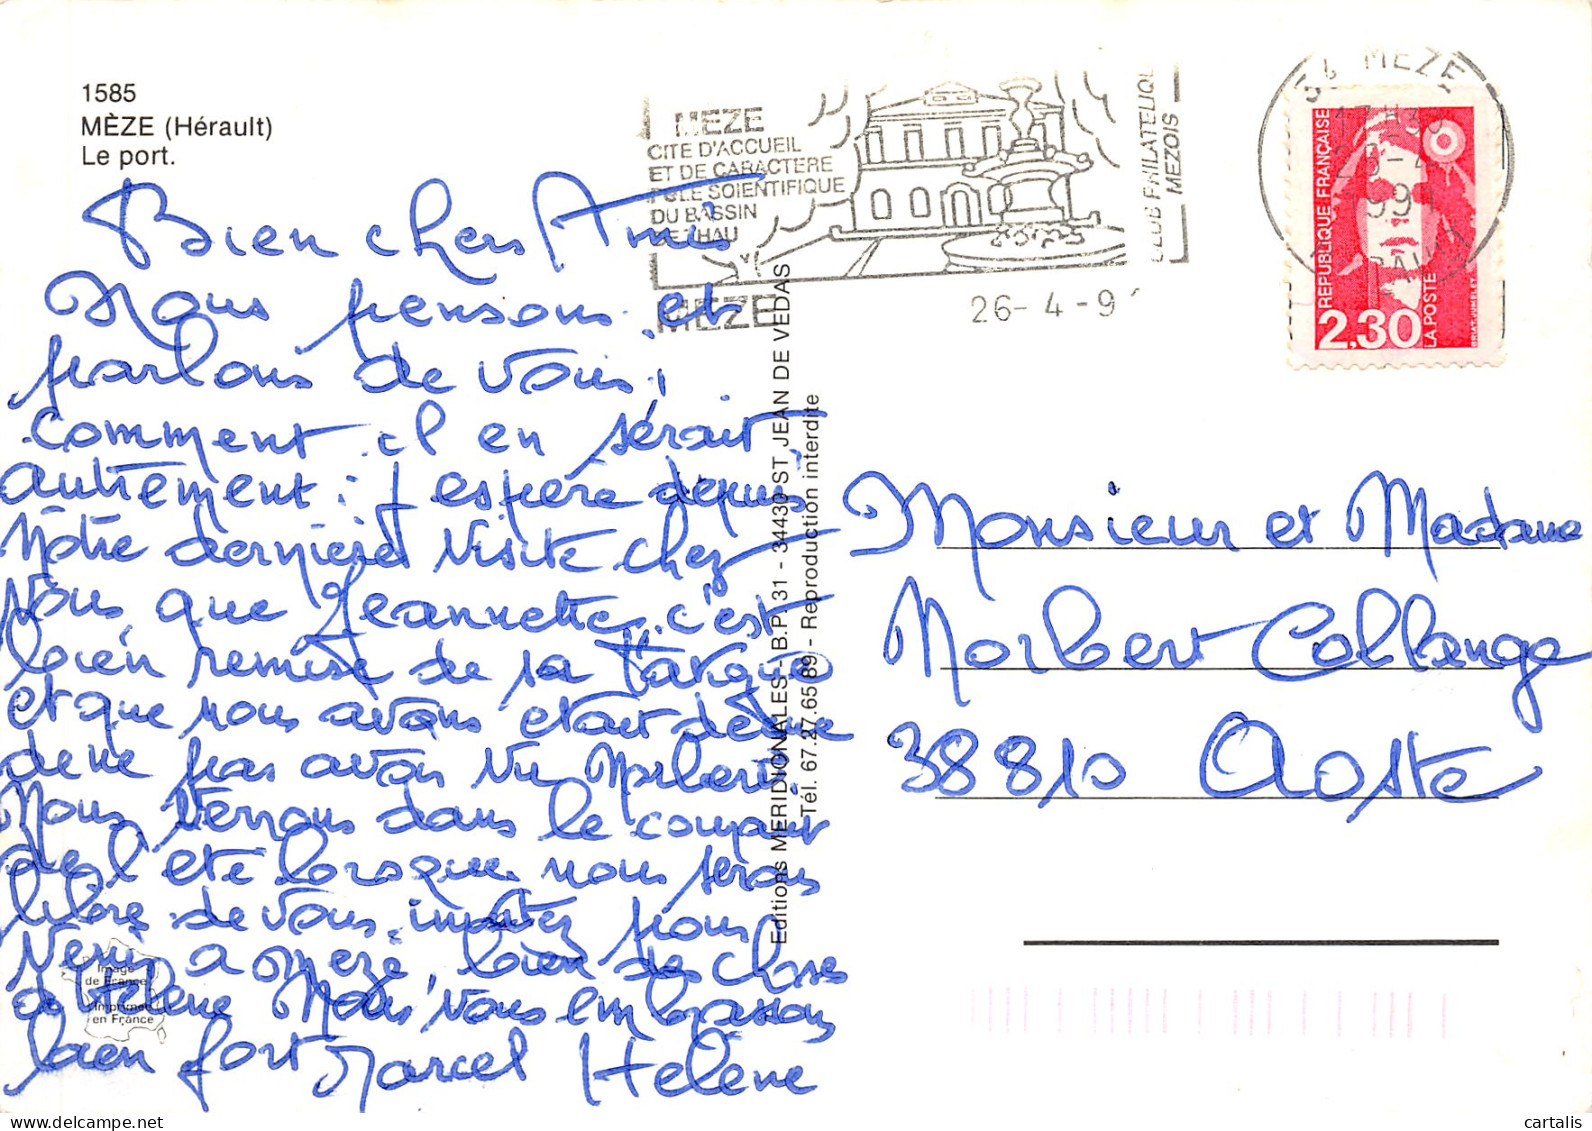 1585
MÈZE (Hérault)
Le port.
MEZE
CITE D'ACCUEIL
ET DE CARACTERE
POLE SCIENTIFIQUE
DU BASSIN
DE THAU
MEZE
CLUB PHILATELIQUE
MEZOIS
26-4-9
34 MEZE
17H30
1991
REPUBLIQUE FRANÇAISE
2,30
LA POSTE
Bien chers Amis
Nous pensons et
parlons de vous,
comment il en serait
autrement : j espère depuis
Nôtre dernière visite chez
vous que Jeannette c'est
bien remise de sa fatigue
et que nous avons était déçue
de ne pas avoir vu Norbert
Nous verrons dans le courant
de l été lorsque nous serons
libre de vous invitez pour
venir a Mèze, bien des choses
de Hélène Nous vous embrassons
bien fort Marcel Hélène
Editions MERIDIONALES - B.P. 31 - 34430 ST JEAN DE VEDAS
Tél. 67.27.65.89 - Reproduction interdite
Monsieur et Madame
Norbert Collange
38810 Aoste
Image
de France
Imprimé
en France
delcampe.net
cartalis